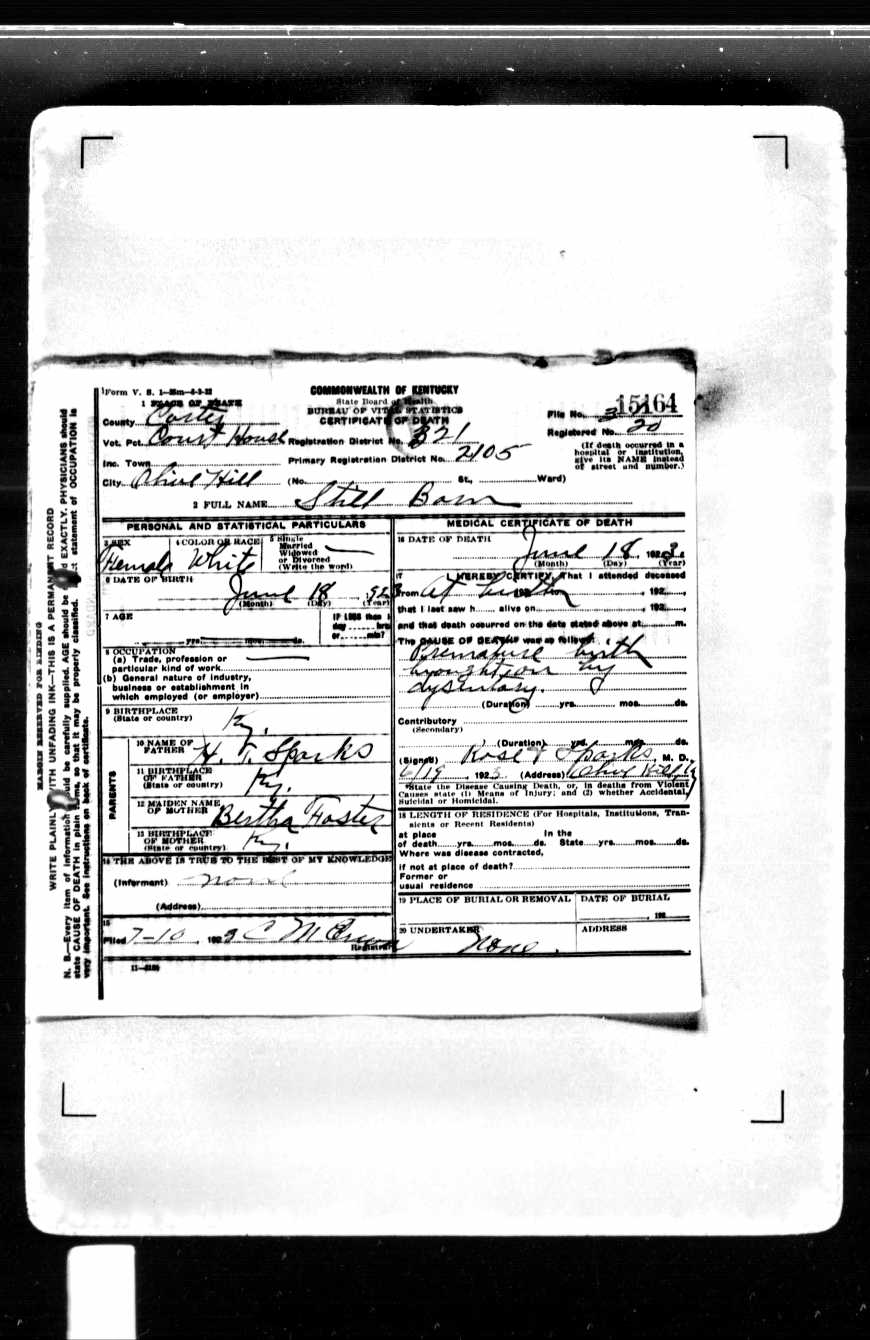 Form V. S. 1-25m-4-3-22
COMMONWEALTH OF KENTUCKY
State Board of Health
BUREAU OF VITAL STATISTICS
CERTIFICATE OF DEATH
1 PLACE OF DEATH
County Carter
Vot. Pct. Court House
Inc. Town
City Olive Hill
Registration District No. 321
Primary Registration District No. 2105
(No. St., Ward)
File No. 15164
Registered No. 20
(If death occurred in a
hospital or institution,
give its NAME instead
of street and number.)
2 FULL NAME Still Born
PERSONAL AND STATISTICAL PARTICULARS
3 SEX
Female
4 COLOR OR RACE
White
5 Single
Married
Widowed
or Divorced
(Write the word)
6 DATE OF BIRTH
June 18 1923
(Month) (Day) (Year)
7 AGE
yrs. mos. ds.
If LESS than 1
day hrs.
or min?
8 OCCUPATION
(a) Trade, profession or
particular kind of work
(b) General nature of industry,
business or establishment in
which employed (or employer)
9 BIRTHPLACE
(State or country)
Ky.
PARENTS
10 NAME OF
FATHER
H. T. Sparks
11 BIRTHPLACE
OF FATHER
(State or country)
Ky.
12 MAIDEN NAME
OF MOTHER
Bertha Foster
13 BIRTHPLACE
OF MOTHER
(State or country)
Ky.
14 THE ABOVE IS TRUE TO THE BEST OF MY KNOWLEDGE
(Informant) none
(Address)
15
Filed 7-10, 192
Registrar
MEDICAL CERTIFICATE OF DEATH
16 DATE OF DEATH
June 18 1923.
(Month) (Day) (Year)
17 I HEREBY CERTIFY, That I attended deceased
from At birth, 192
that I last saw h alive on , 192
and that death occurred on the date stated above at m.
The CAUSE OF DEATH* was as follows:
Premature birth
brought on by
dysentary.
(Duration) yrs. mos. ds.
Contributory
(Secondary)
(Duration) yrs. mos. ds.
(Signed) Sparks M. D.
6/19, 1923 (Address) Olive Hill Ky
*State the Disease Causing Death, or, in deaths from Violent
Causes state (1) Means of Injury; and (2) whether Accidental,
Suicidal or Homicidal.
18 LENGTH OF RESIDENCE (For Hospitals, Institutions, Tran-
sients or Recent Residents)
at place In the
of death yrs. mos. ds. State yrs. mos. ds.
Where was disease contracted,
if not at place of death?
Former or
usual residence
19 PLACE OF BURIAL OR REMOVAL
DATE OF BURIAL
, 192
20 UNDERTAKER
None
ADDRESS
MARGIN RESERVED FOR BINDING
WRITE PLAINLY WITH UNFADING INK—THIS IS A PERMANENT RECORD
N. B.—Every item of information should be carefully supplied. AGE should be EXACTLY. PHYSICIANS should
state CAUSE OF DEATH in plain terms, so that it may be properly classified. statement of OCCUPATION is
very important. See instructions on back of certificate.